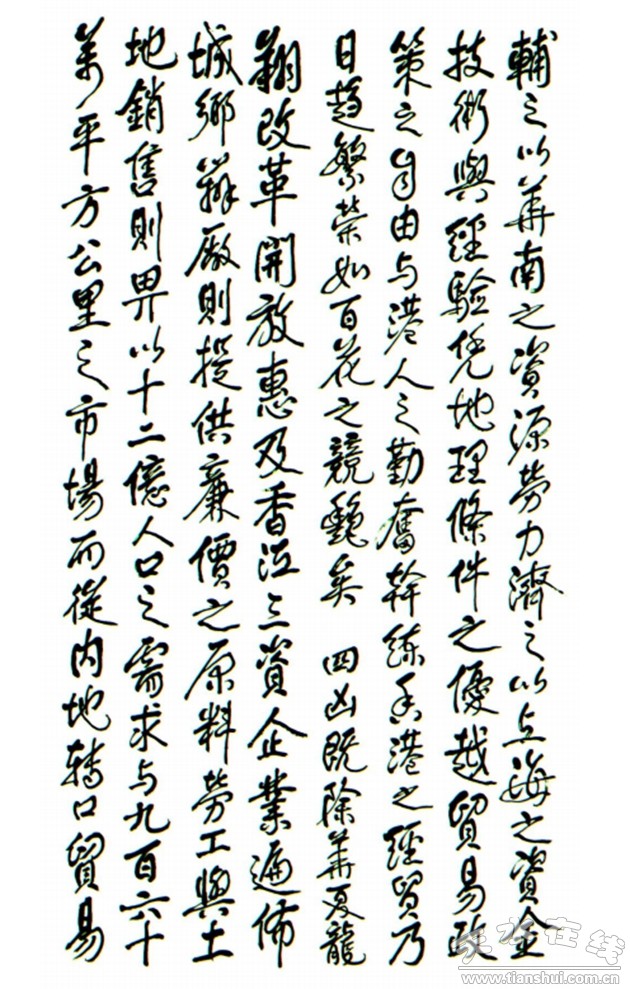 輔之以華南之資源勞力濟之以上海之資金
技術與經驗凭地理條件之優越貿易政
策之自由与港人之勤奮幹練香港之經貿乃
日趨繁荣如百花之競艷矣 四凶既除華夏龍
翔改革開放惠及香江三資企業遍佈
城鄉辦廠則提供廉價之原料勞工與土
地銷售則畀以十二億人口之需求与九百六十
萬平方公里之市場而從内地轉口貿易
天水在线
www.tianshui.com.cn